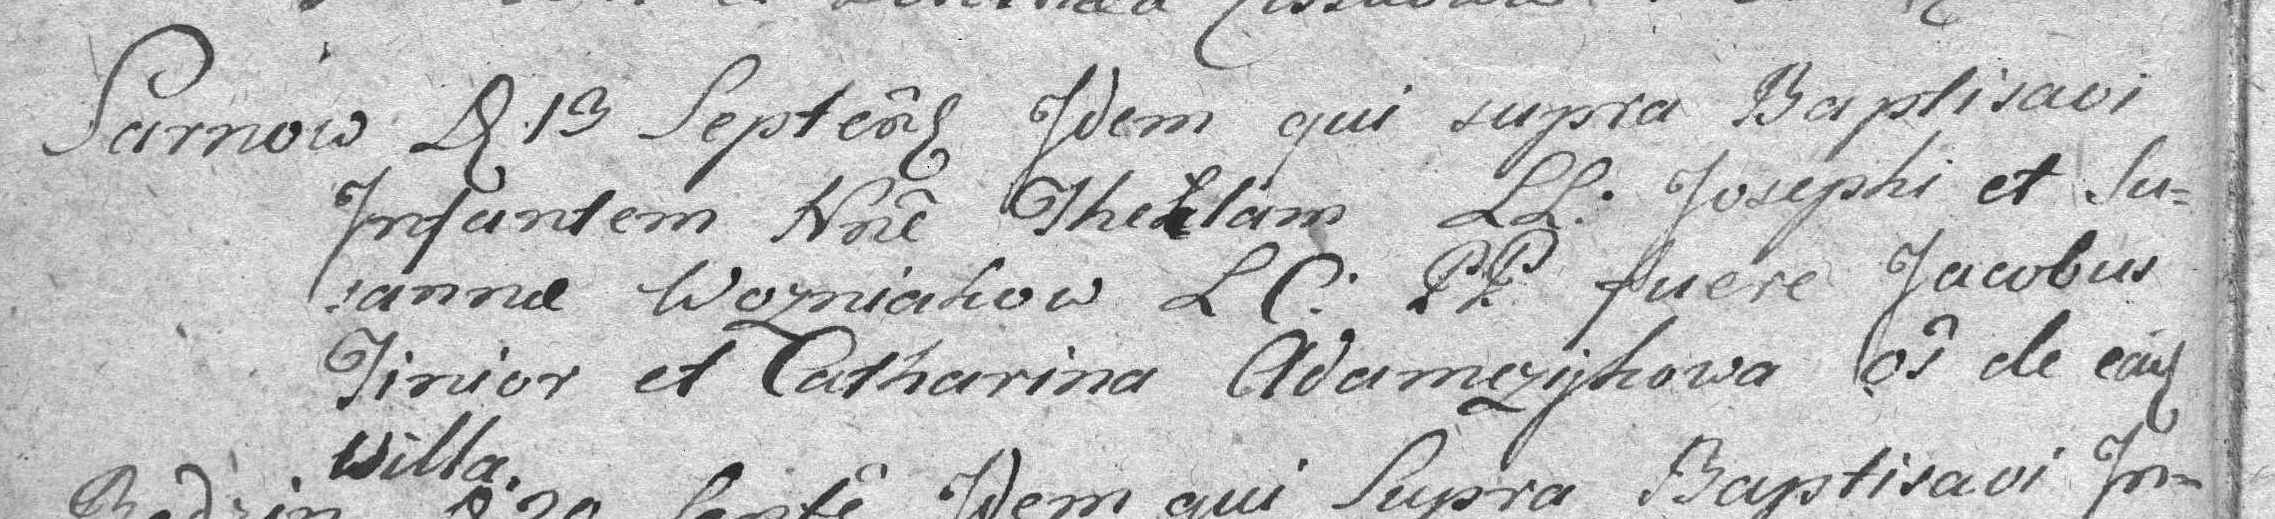 Sarnow D. 13 Septembris Idem qui supra Baptisavi
Infantem Nnē Theklam LL: Josephi et Su=
sanna Wozniakow L C: PP fuere Jacobus
Jinior et Catharina Adamczykowa oš de eadē
willa.
Będzin D. 20 Septê Idem qui Supra Baptisavi In=